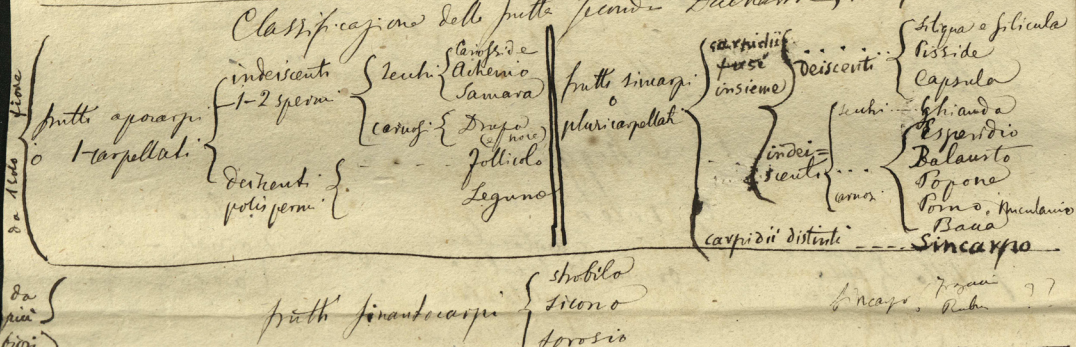 Classificazione delle frutta secondo
da 1 solo fiore
frutti apocarpi
o 1-carpellati
indeiscenti
1-2 spermi
secchi
Cariosside
Achenio
Samara
carnosi
Drupa
(e noce)
deiscenti
polispermi
Follicolo
Legume
frutti sincarpi
o
pluricarpellati
carpidii
fusi
insieme
deiscenti
siliqua e silicula
Pisside
Capsula
indei=
scenti
secchi
Ghianda
carnosi
Esperidio
Balausto
Popone
Pomo, Nuculanio
Bacca
carpidii distinti
Sincarpo
da
più
fiori
frutti sinantocarpi
strobilo
sicono
sorosio
Sincarpo,
Rubus
? ?